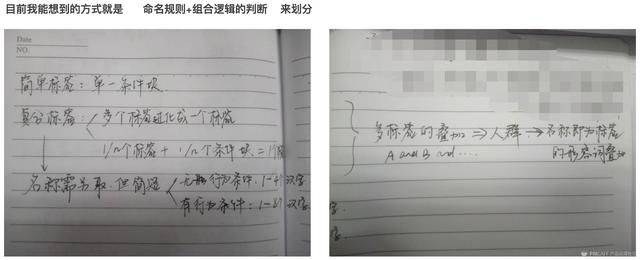 目前我能想到的方式就是 命名规则+组合逻辑的判断 来划分
Date
NO.
简单标签：单一条件块
复合标签： 多个标签进化成一个标签
1/n个标签 + 1/n个条件块 = 1个
名称需另取，但简短
无行为条件：1-4汉字
有行为条件：1-8汉字
多标签的叠加 ⇒ 人群 → 名称即为标签
A and B and .... 的形容词叠加
字.
字.
PMCAFF